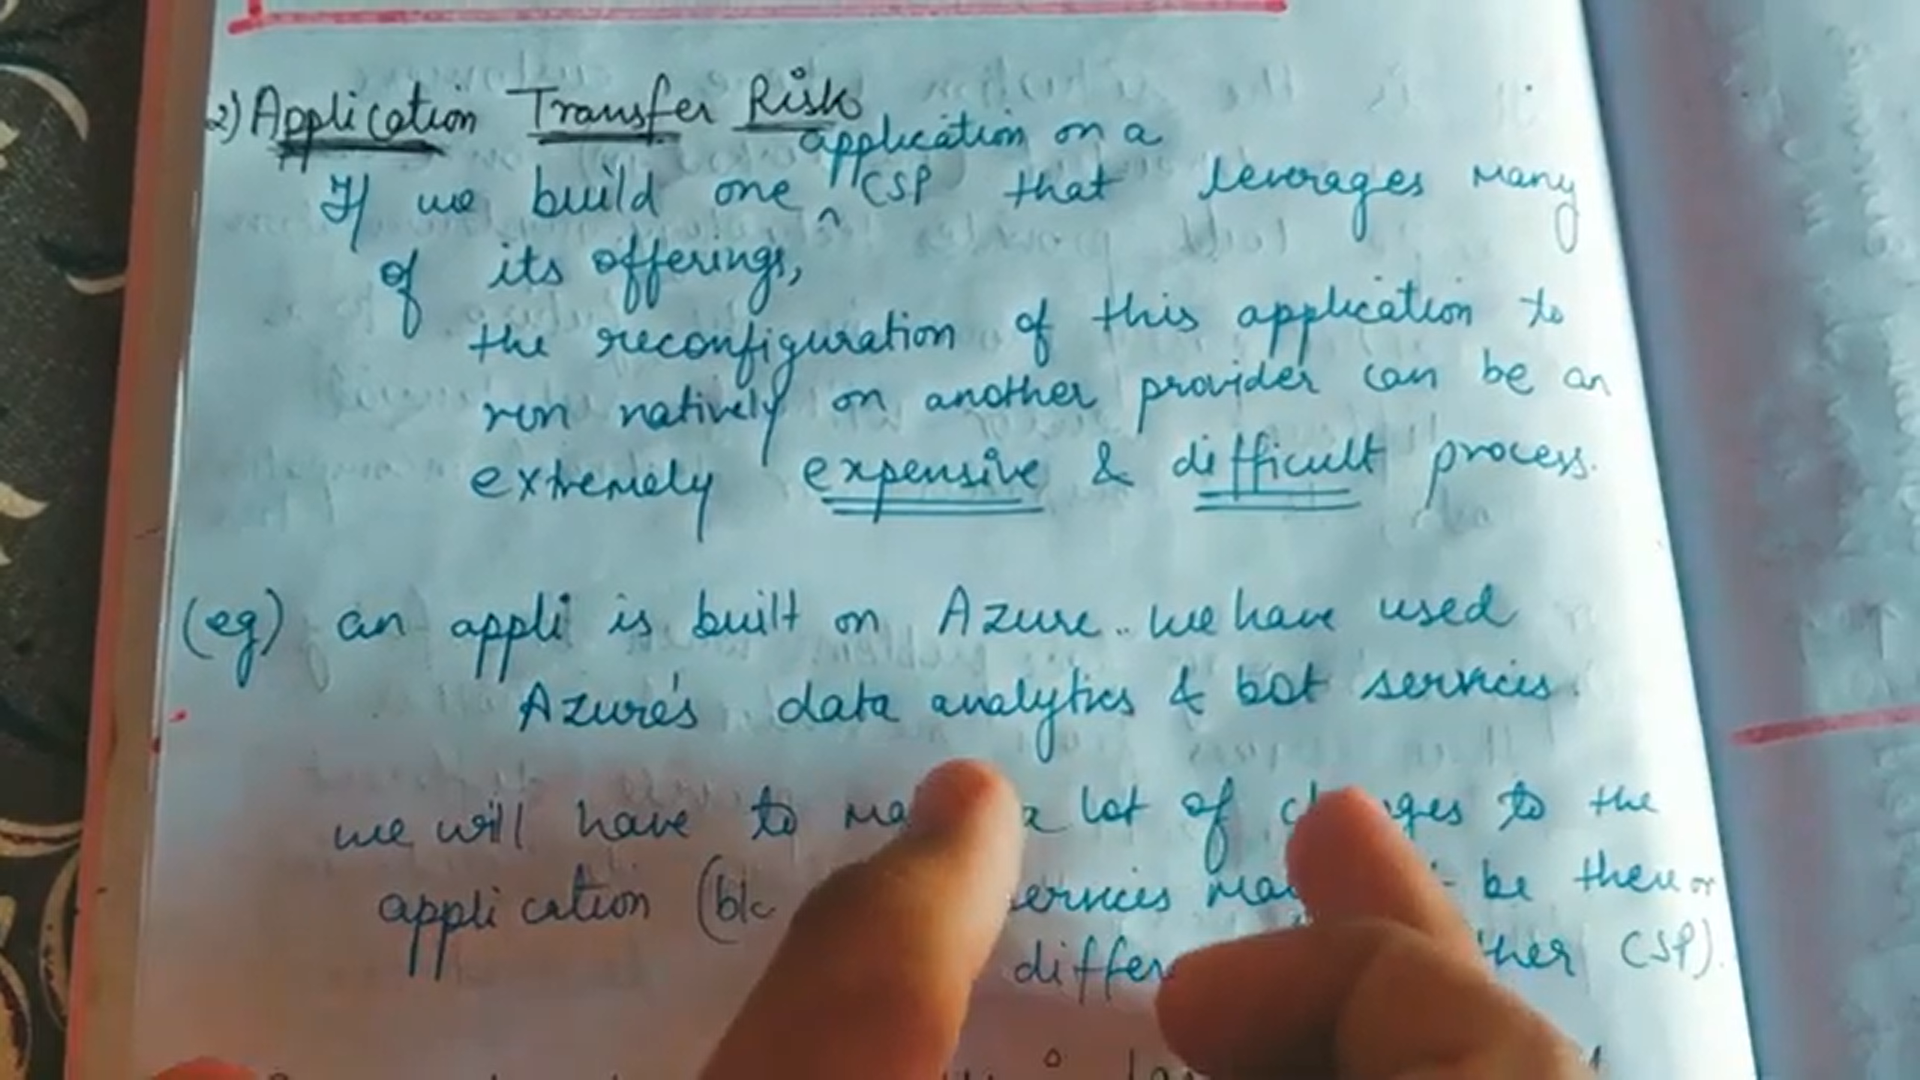 2) Application Transfer Risk
application on a
If we build one ^ CSP that leverages many
of its offerings,
the reconfiguration of this application to
run natively on another provider can be an
extremely expensive & difficult process.
(eg) an appli is built on Azure.. we have used
Azure's data analytics & bot services.
we will have to a lot of to the
application (b/c be there or
CSP).